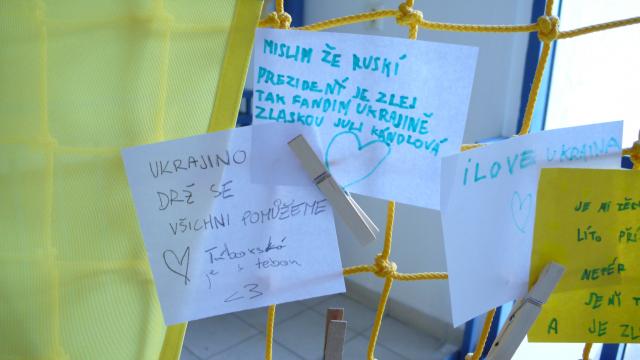 MISLIM ŽE RUSKÍ
PREZIDENŤ JE ZLEJ
TAK FANDIM UKRAJINĚ
ZLASKOU JULI KÁNDLOVÁ
UKRAJINO
DRŽ SE
VŠICHNI POMŮŽEME
je s tebou
<3
iLOVE UKRAINA
JE MI
LÍTO
A JE